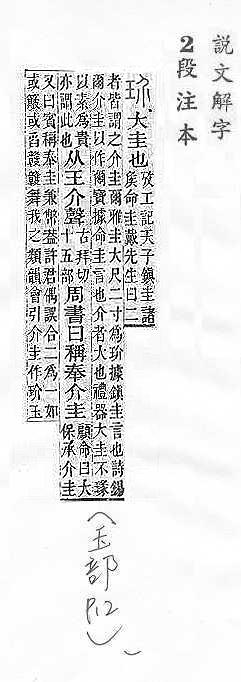 說文解字
2段注本
玠大圭也
攷工記天子鎮圭諸
侯命圭戴先生曰二
者皆謂之介圭爾雅圭大尺二寸為玠據鎮圭言也詩錫
爾介圭以作爾寶據命圭言也介者大也禮器大圭不琢
以素為貴
亦謂此也
从王介聲
古拜切
十五部
周書曰稱奉介圭
顧命曰大
保承介圭
又曰賓稱奉圭兼幣葢許君偶誤合二為一如
或簸或舀鼚鼚舞我之類韻會引介圭作玠玉
(玉部P.12)